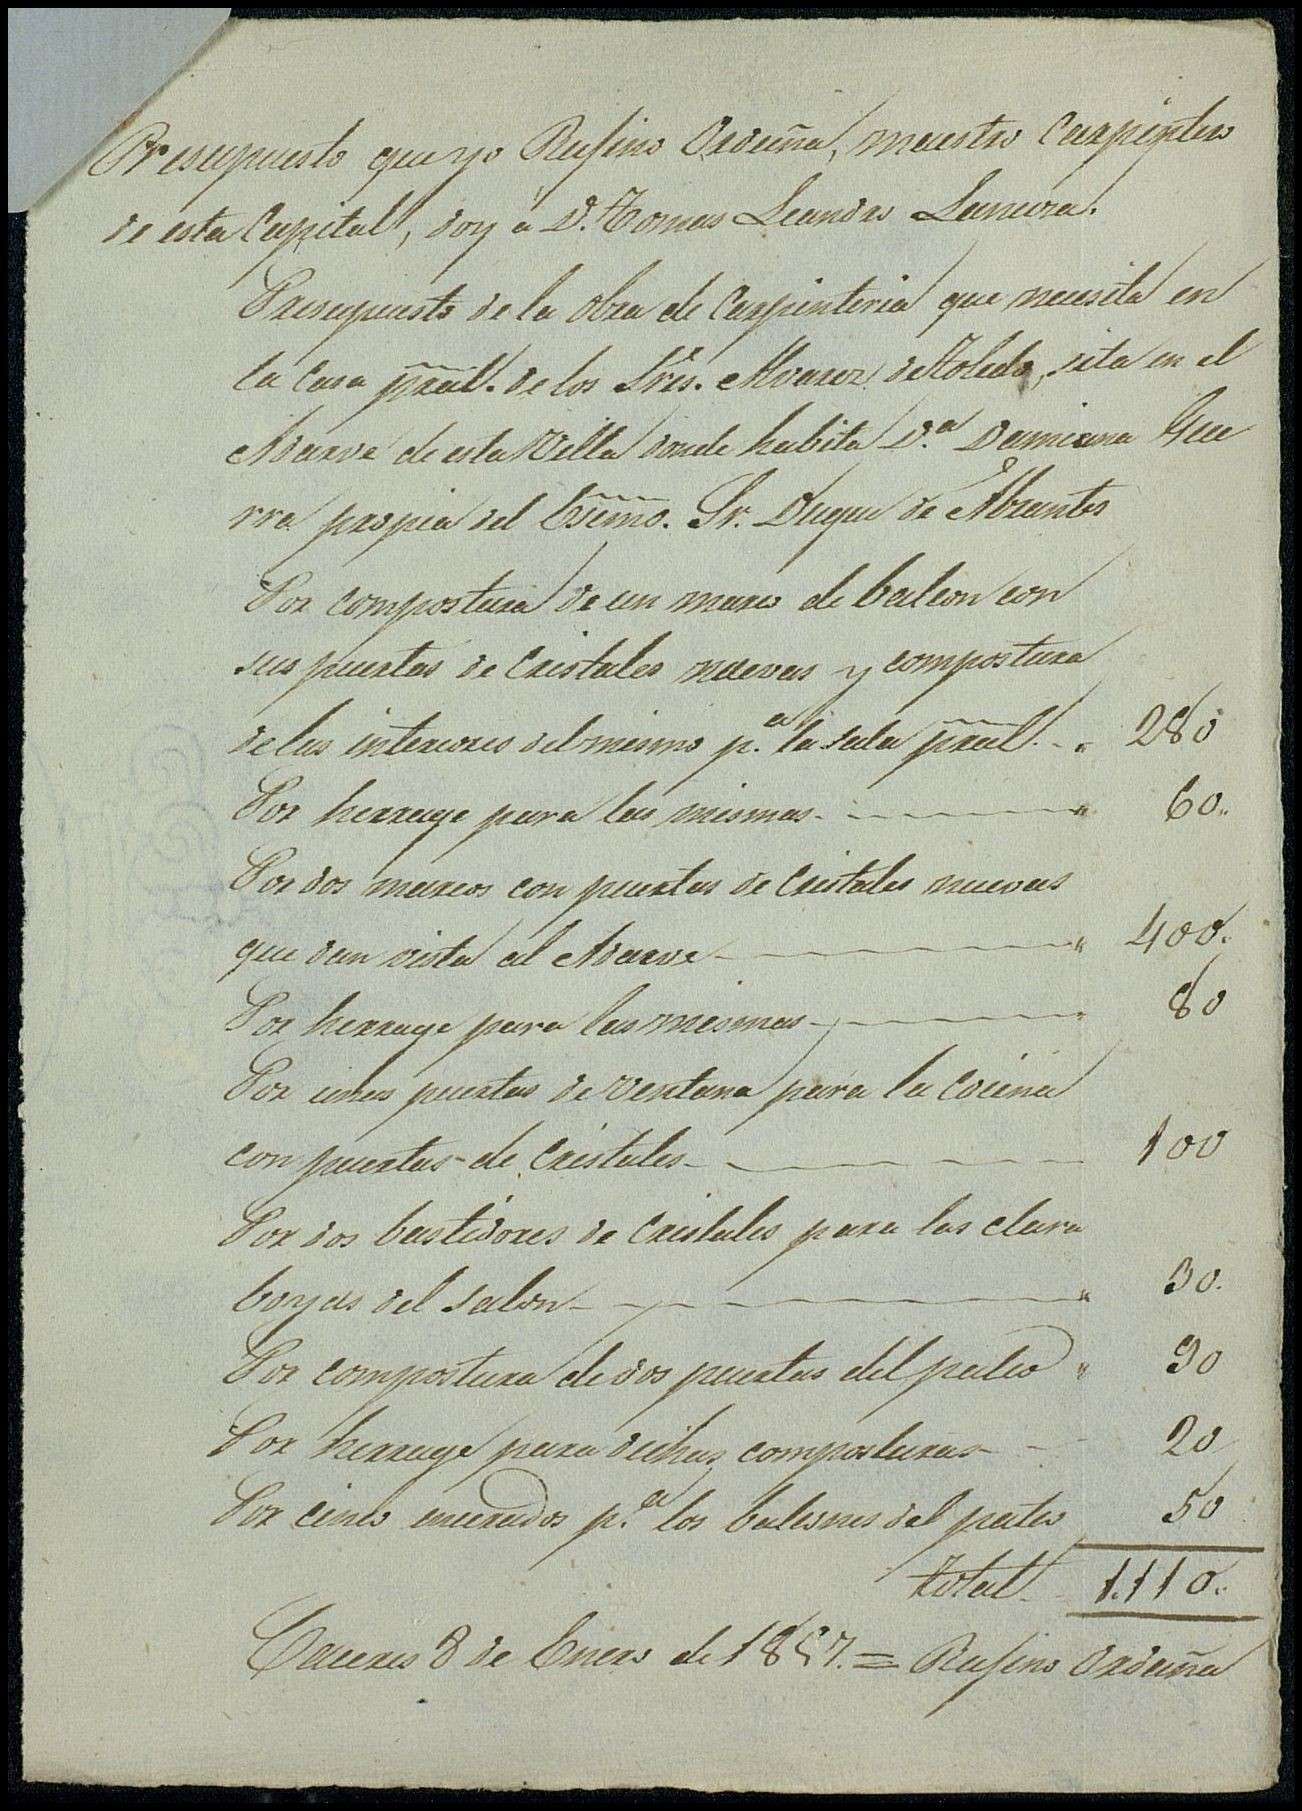 Presupuesto que yo Rufino Orduña, maestro Carpintero
de esta Capital, doy a D. Tomas Leandro Lancora.
Presupuesto de la obra de Carpinteria que necesita en
la Casa pral. de los Sres. Alvarez de Toledo, sita en el
Adarve de esta Villa donde habita D.ª Damiana Gue
rra propia del Esmo. Sr. Duque de Abrantes
Por compostura de un marco de balcon con
sus puertas de Cristales nuevas y compostura
de las interiores del mismo p.ª la sala pral. 280
Por herrage para las mismas 60
Por dos marcos con puertas de Cristales nuevas
que dan vista al Adarve 400.
Por herrage para las mismas 80
Por unas puertas de ventana para la Cocina
con puertas de Cristales 100
Por dos bastidores de Cristales para las clara
boyas del salon 30.
Por compostura de dos puertas del patio 90
Por herrage para dichas composturas 20
Por cinco encerados p.ª los balcones del patio 50
total 1.110.
Caceres 8 de Enero de 1857. = Rufino Orduña